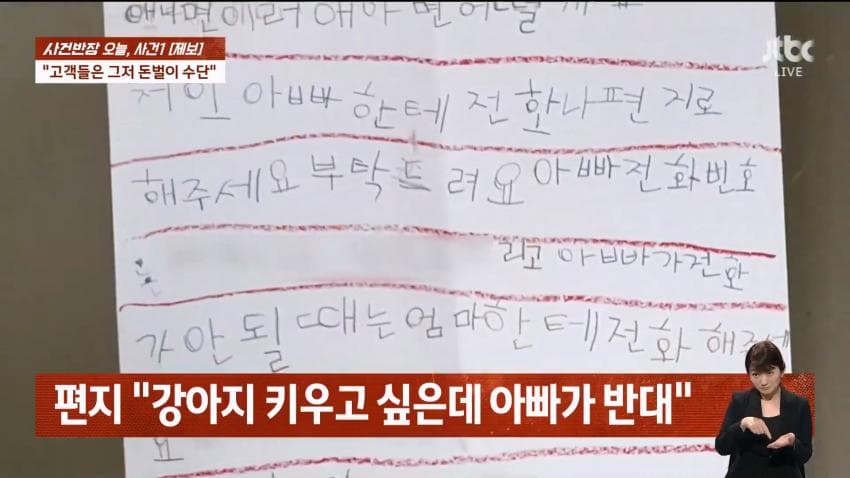 사건반장 오늘, 사건1 [제보]
"고객들은 그저 돈벌이 수단"
jtbc
LIVE
저의 아빠한테 전화나편 지로
해주세요 부탁드 려요 아빠전화번호
는
리고 아빠가전화
가안될때는엄마한테전화 해주세
편지 "강아지 키우고 싶은데 아빠가 반대"
요